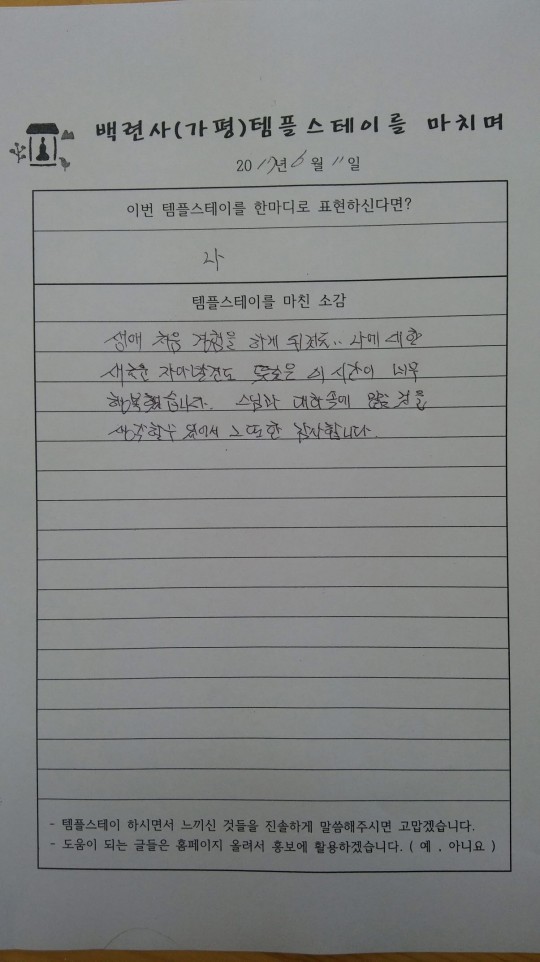 백련사(가평)템플스테이를 마치며
2017년 6월 11일
이번 템플스테이를 한마디로 표현하신다면?
나
템플스테이를 마친 소감
생애 처음 경험을 하게 되었는데.. 나에 대한
새로운 자아발견도 이 시간이 너무
행복했습니다. 스님과 대화속에 많은 것을
생각할수 있어서 또한 감사합니다.
- 템플스테이 하시면서 느끼신 것들을 진솔하게 말씀해주시면 고맙겠습니다.
- 도움이 되는 글들은 홈페이지 올려서 홍보에 활용하겠습니다. ( 예 . 아니요 )